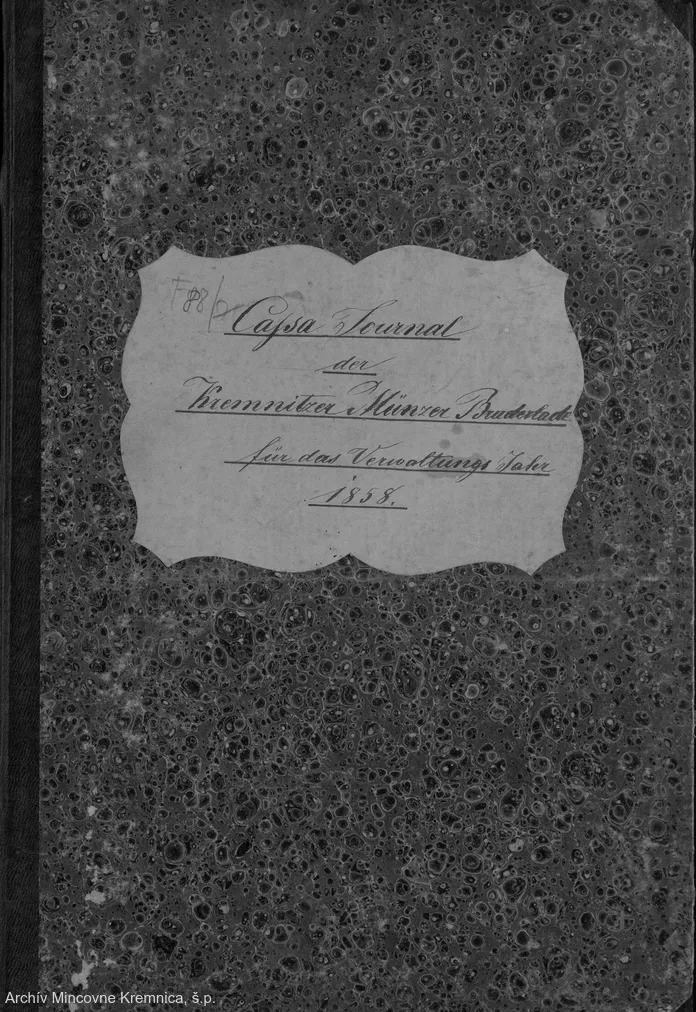 F 88/2
Caſsa Journal
der
Kremnitzer Münzer Bruderlade
für das Verwaltungs Jahr
1858.
Archív Mincovne Kremnica, š.p.